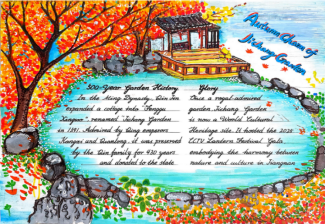 Autumn Charm of
Jichang Garden
300-Year Garden History
In the Ming Dynasty, Qin Jin
expanded a villege into "Fenggu
Xingwo", renamed "Jichang Garden"
in 1591. Admired by Qing emperors
Kangxi and Qianlong, it was preserved
by the Qin family for 430 years
and donated to the state
Glory
Once a royal-admired
garden Jichang Garden
is now a World Cultural
Heritage site. It hosted the 2026
CCTV Lantern Festival Gala
embodying the harmony between
nature and culture in Jiangnan